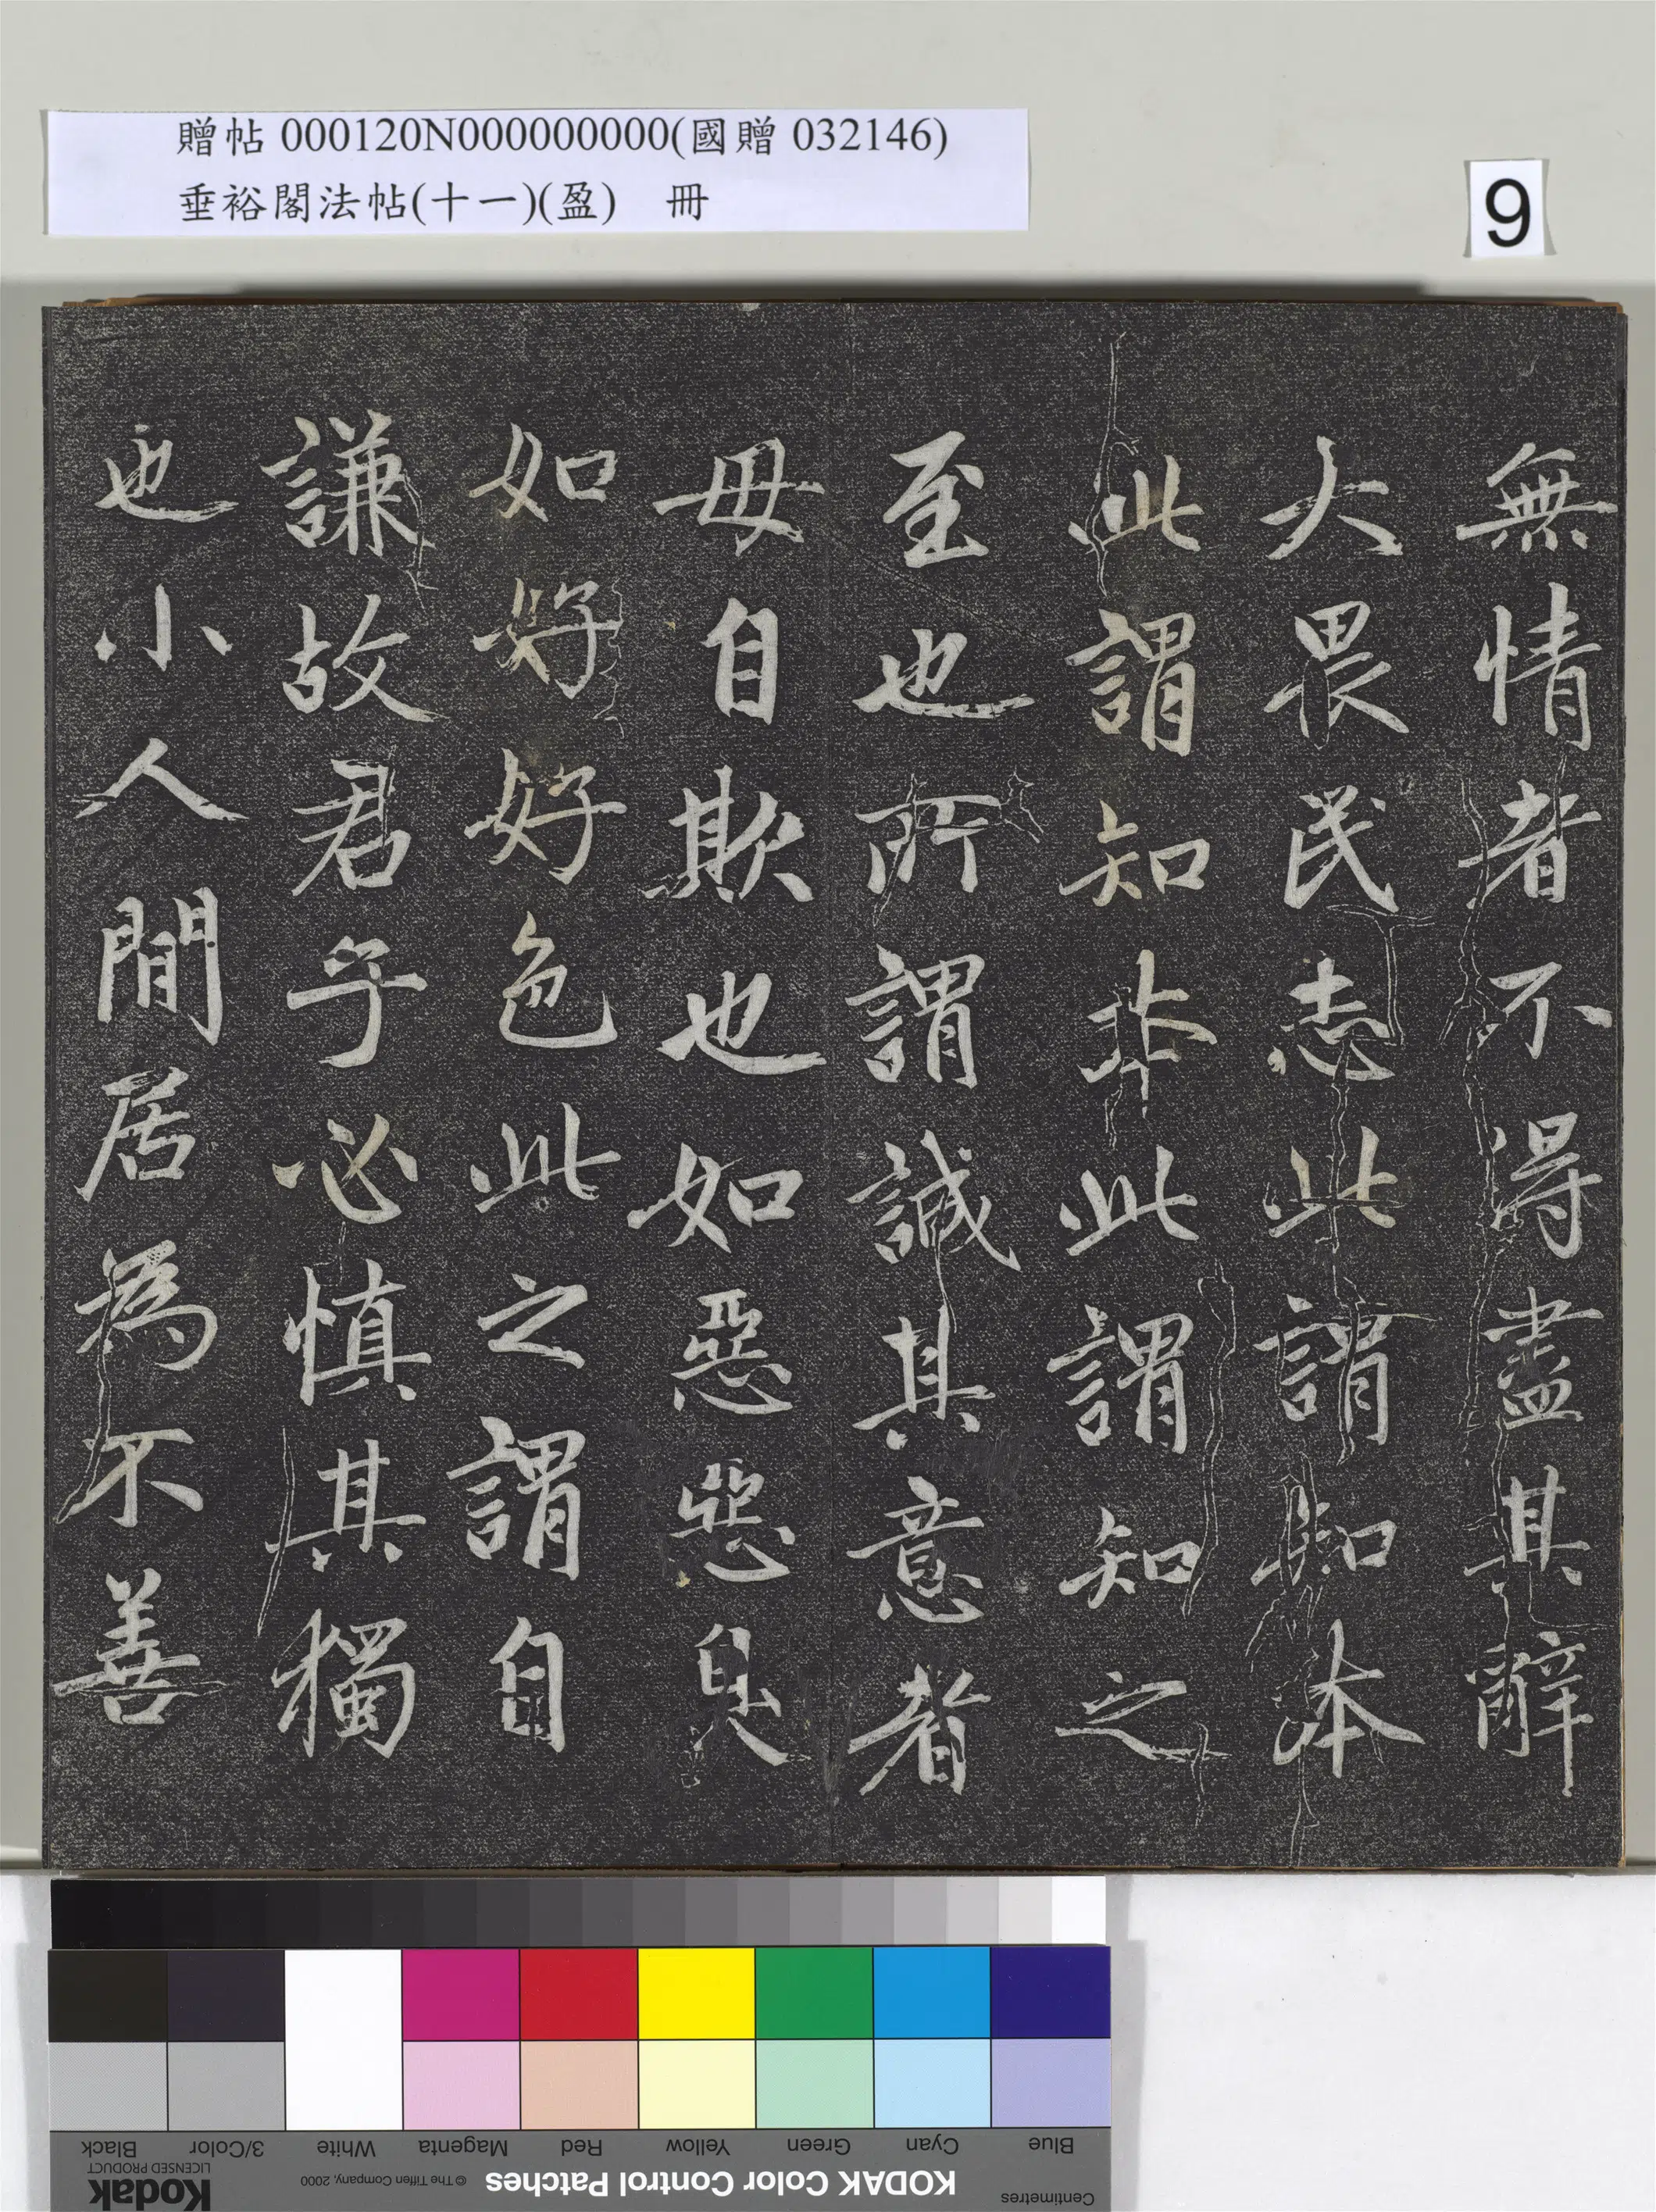 贈帖 000120N000000000(國贈 032146)
垂裕閣法帖(十一)(盈)　冊
9
無情者不得盡其辭
大畏民志此謂知本
此謂知非此謂知之
至也所謂誠其意者
毋自欺也如惡惡臭
如好好色此之謂自
謙故君子必慎其獨
也小人閒居為不善
Blue Cyan Green Yellow Red Magenta White 3/Color Black
Centimetres
KODAK Color Control Patches
© The Tiffen Company, 2000
Kodak
LICENSED PRODUCT